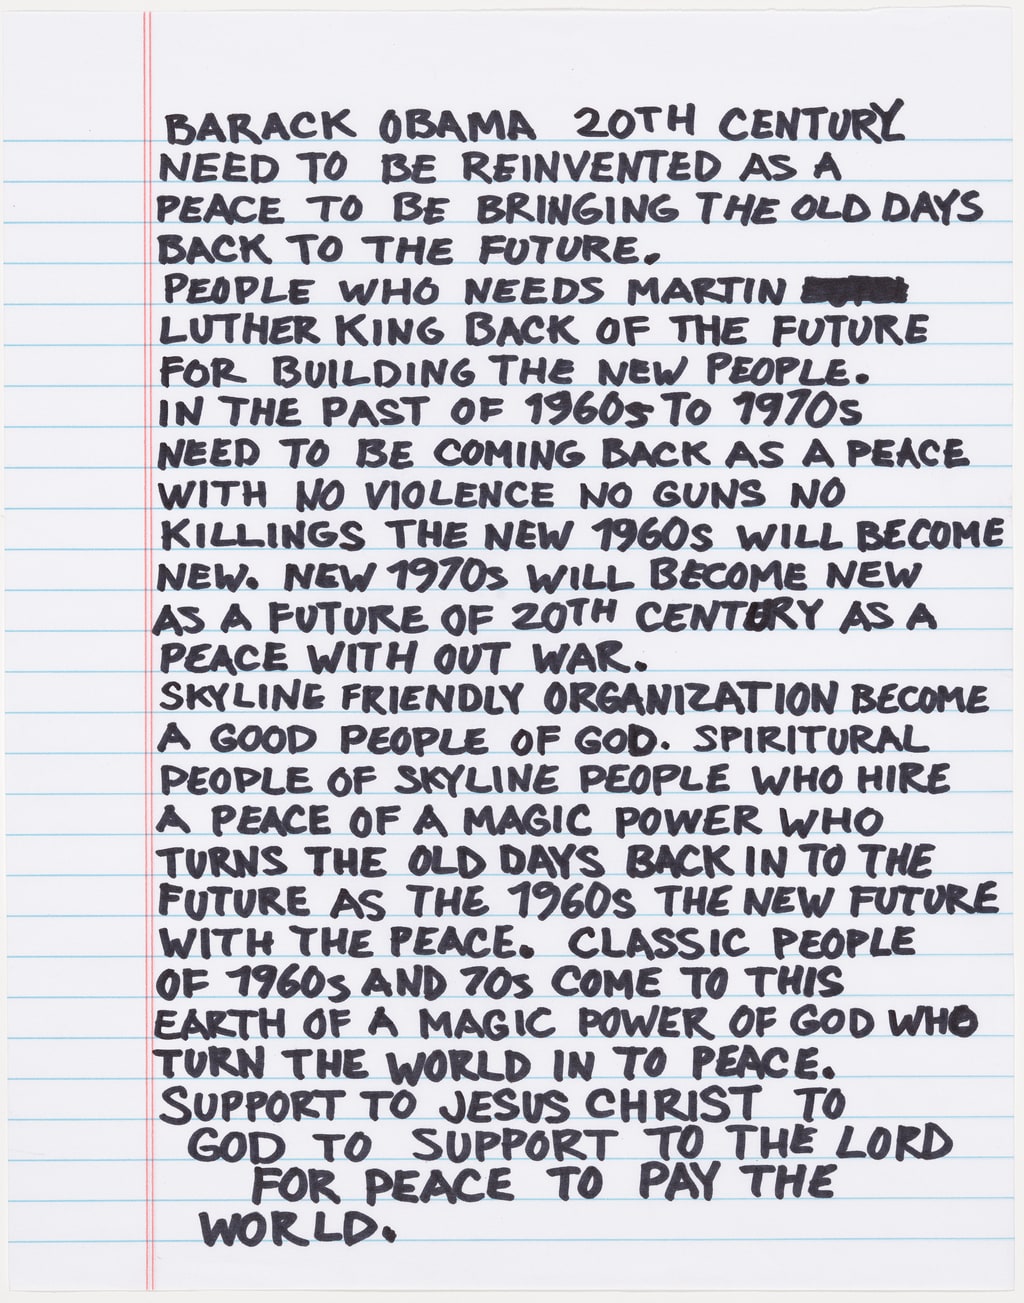 BARACK OBAMA 20TH CENTURY
NEED TO BE REINVENTED AS A
PEACE TO BE BRINGING THE OLD DAYS
BACK TO THE FUTURE.
PEOPLE WHO NEEDS MARTIN
LUTHER KING BACK OF THE FUTURE
FOR BUILDING THE NEW PEOPLE.
IN THE PAST OF 1960s TO 1970s
NEED TO BE COMING BACK AS A PEACE
WITH NO VIOLENCE NO GUNS NO
KILLINGS THE NEW 1960s WILL BECOME
NEW. NEW 1970s WILL BECOME NEW
AS A FUTURE OF 20TH CENTURY AS A
PEACE WITH OUT WAR.
SKYLINE FRIENDLY ORGANIZATION BECOME
A GOOD PEOPLE OF GOD. SPIRITURAL
PEOPLE OF SKYLINE PEOPLE WHO HIRE
A PEACE OF A MAGIC POWER WHO
TURNS THE OLD DAYS BACK IN TO THE
FUTURE AS THE 1960s THE NEW FUTURE
WITH THE PEACE. CLASSIC PEOPLE
OF 1960s AND 70s COME TO THIS
EARTH OF A MAGIC POWER OF GOD WHO
TURN THE WORLD IN TO PEACE.
SUPPORT TO JESUS CHRIST TO
GOD TO SUPPORT TO THE LORD
FOR PEACE TO PAY THE
WORLD.